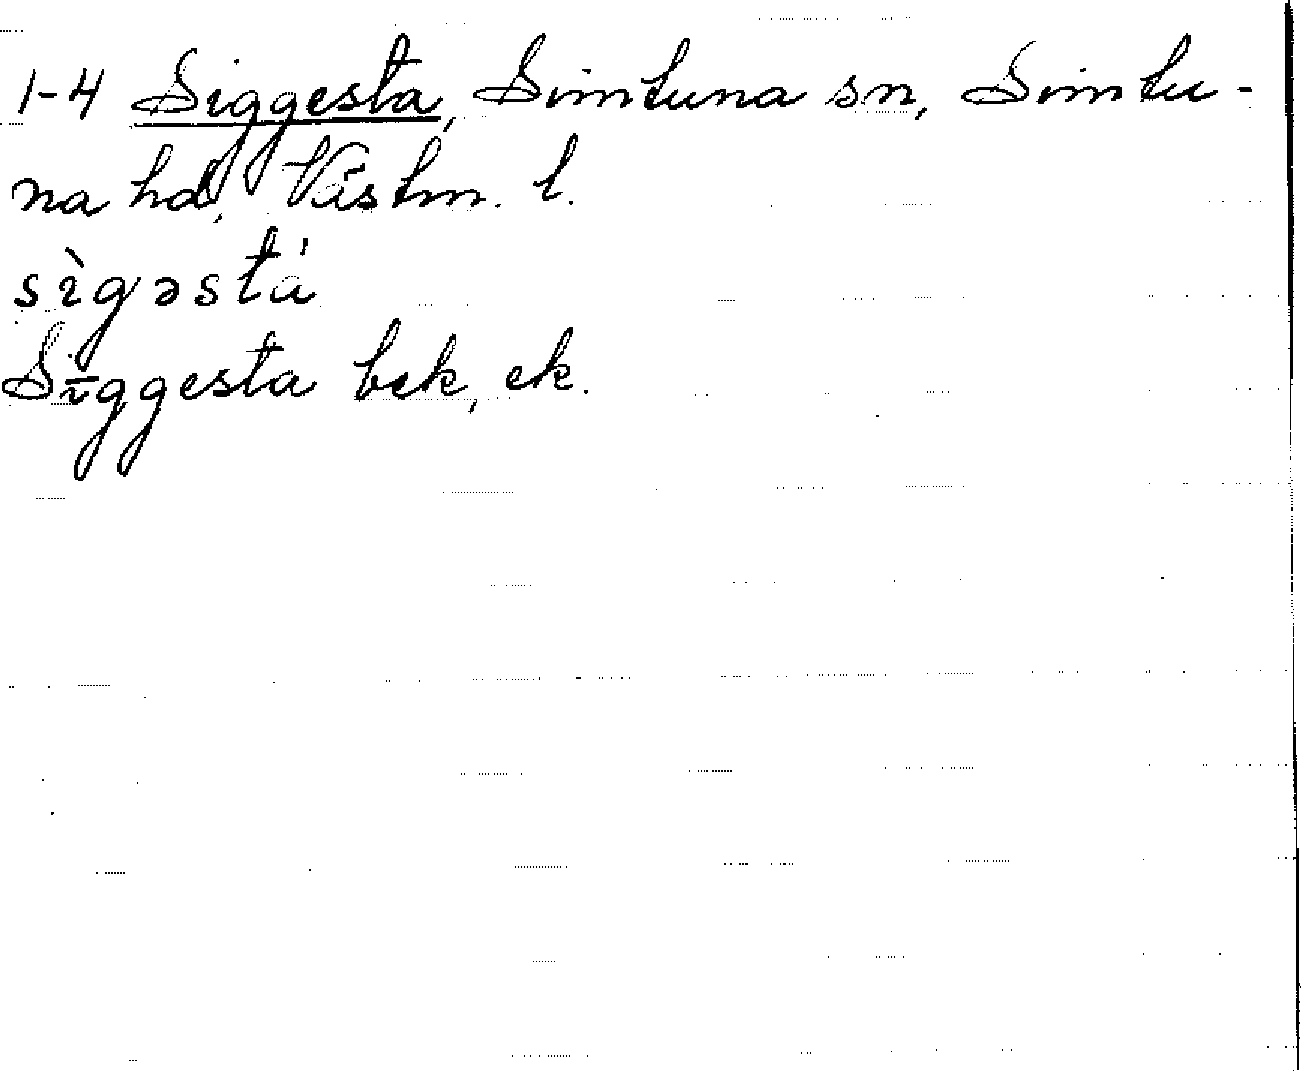 1-4 Siggesta, Simtuna sn, Simtu-
na hd, Västm. l.
sìgəstá
Sīggesta bek, ek.